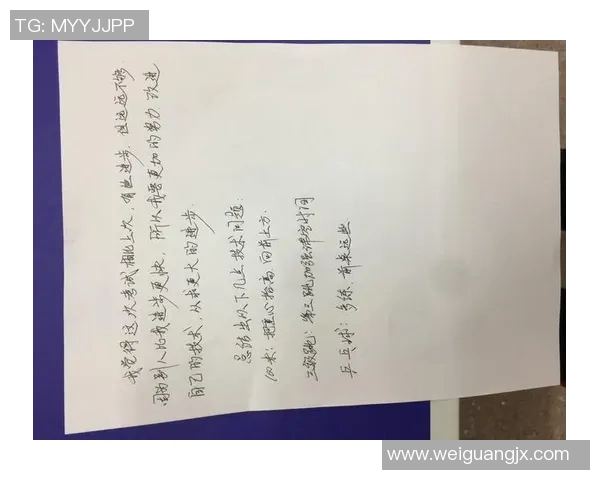 TG: MYYJJPP
我觉得这次考试相比上次，有些进步，但远远不够
因为别人比我进步更快，所以我要更加的努力，改进
自己的技术，以求更大的进步。
总结出以下几点技术问题：
100米：把重心抬高，向前上方.
三级跳：第三跳加强滞空时间
乒乓球：多练，前桌远些
www.weiguangjx.com